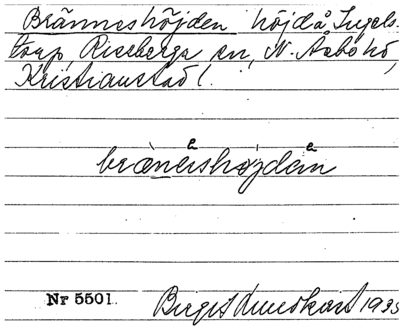 Brännneshöjden höjd å Ingels-
torp, Riseberga sn, N. Åsbo hd,
Kristianstad l.
brænershøjden
Nr 5501.
Birgit 1935